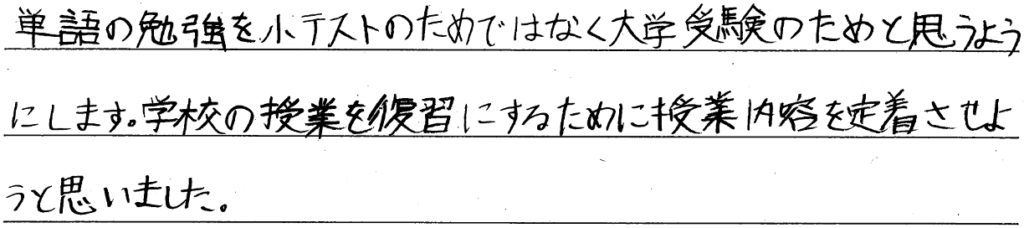 単語の勉強を小テストのためではなく大学受験のためと思うよう
にします。学校の授業を復習にするために授業内容を定着させよ
うと思いました。